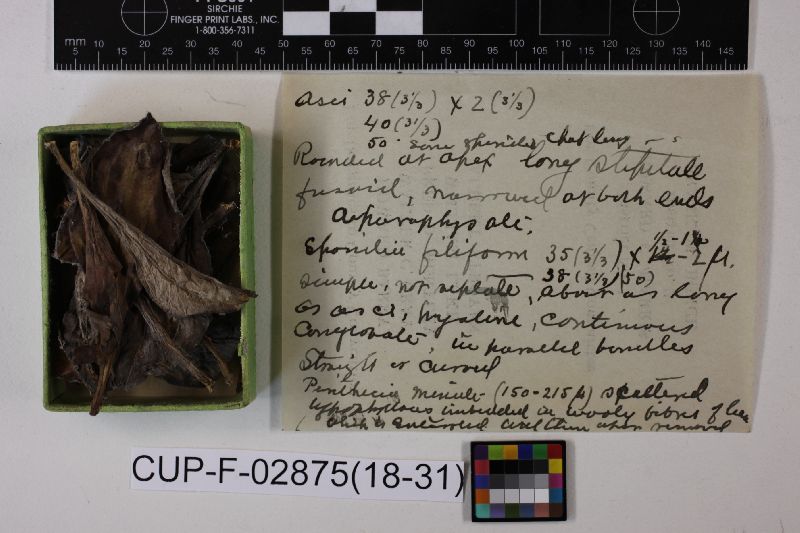 SIRCHIE
FINGER PRINT LABS., INC.
1-800-356-7311
mm 10 20 30 40 50 60 70 80 90 100 110 120 130 140
5 15 25 35 45 55 65 75 85 95 105 115 125 135 145
Asci 38 (3 1/3) x 2 (3 1/3)
40 (3 1/3)
50 some
Rounded at apex long stipitate
fusoid, narrowed at both ends
Aparaphysate,
1/2 - 1
Sporidia filiform 35 (3 1/3) x - 2 µ.
38 (3 1/3) (50)
simple, not septate, about as long
as asci, hyaline, continuous
conglobate, in parallel bundles
Straight or curved
Perithecia minute (150-215 µ) scattered
hypophyllous imbedded in wooly fibres of
when removed
CUP-F-02875(18-31)